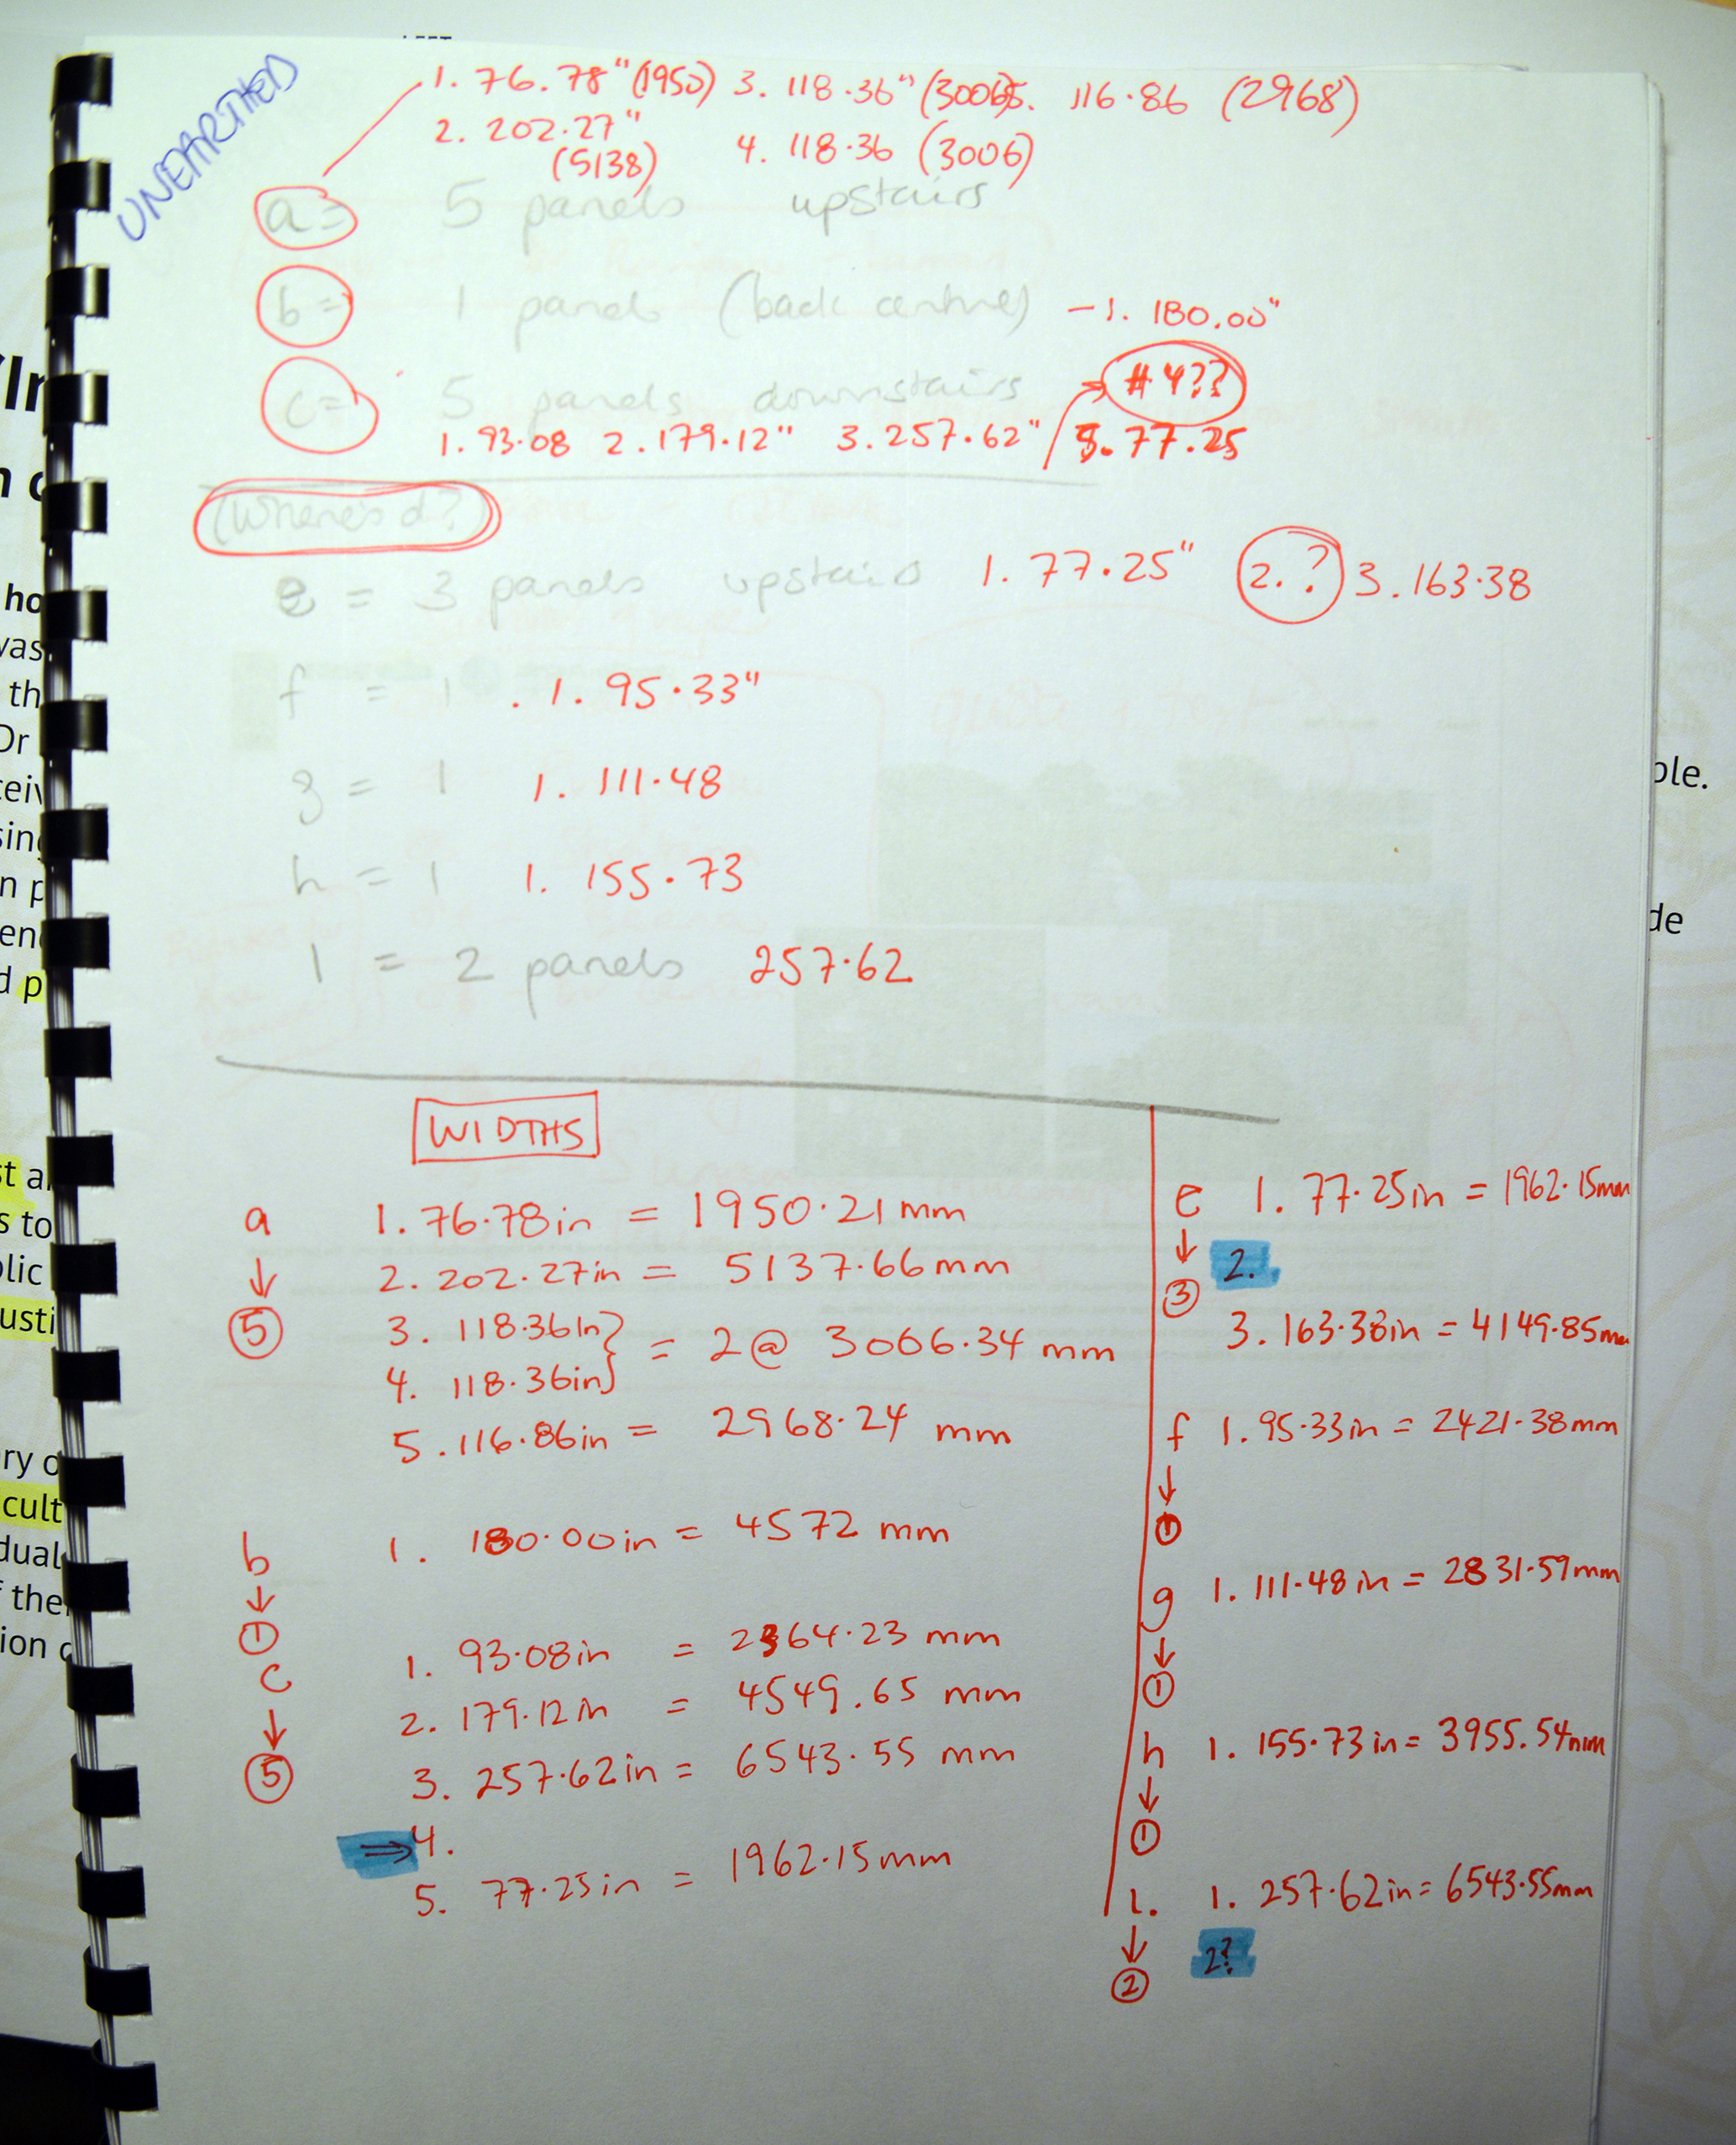 UNEARTHED
1. 76.78" (1950) 3. 118.36" (3006) 5. 116.86 (2968)
2. 202.27" (5138) 4. 118.36 (3006)
a = 5 panels upstairs
b = 1 panels (back centre) - 1. 180.00"
c = 5 panels downstairs #4??
1. 93.08 2. 179.12" 3. 257.62" 5. 77.25
(Where's d?)
e = 3 panels upstairs 1. 77.25" 2. ? 3. 163.38
f = 1 . 1. 95.33"
g = 1 1. 111.48
h = 1 1. 155.73
l = 2 panels 257.62
WIDTHS
a 1. 76.78in = 1950.21mm
↓ 2. 202.27in = 5137.66mm
⑤ 3. 118.36in} = 2@ 3006.34 mm
4. 118.36in}
5. 116.86in = 2968.24 mm
b 1. 180.00in = 4572 mm
↓
①
c 1. 93.08in = 2364.23 mm
↓ 2. 179.12in = 4549.65 mm
⑤ 3. 257.62in = 6543.55 mm
⇒ 4.
5. 77.25in = 1962.15mm
e 1. 77.25in = 1962.15mm
↓ 2.
③
3. 163.38in = 4149.85mm
f 1. 95.33in = 2421.38mm
↓
①
g 1. 111.48in = 2831.59mm
↓
①
h 1. 155.73in = 3955.54mm
↓
①
l. 1. 257.62in = 6543.55mm
↓ 2?
②
ho
was
th
Dr
sing
n p
d p
st a
s to
lic
usti
ry o
cult
dual
f the
ion
ple.
de